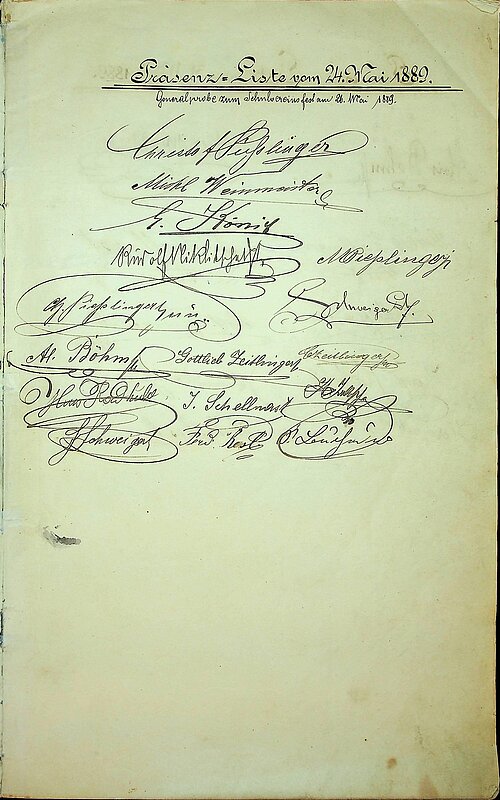 Präsenz-Liste vom 24. Mai 1889.
Generalprobe zum Schulvereinsfest am 26. Mai 1889.
Christof Pießlinger
Michl Weinmeister
G. König
Rudolf
M Pießlinger
Ch. Pießlinger jun.
Schweiger
Al. Böhm
Gottlob Zeitlinger
Zeitlinger
Hans
J. Schellnast
Schweiger
Ferd.